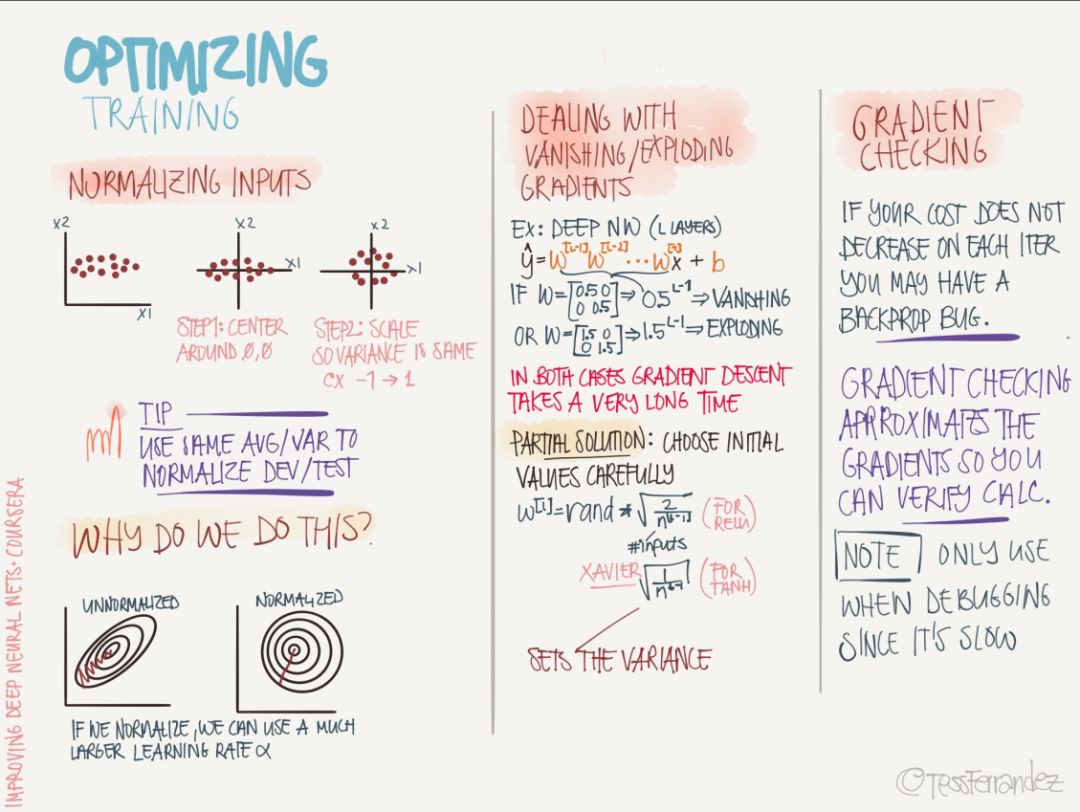 OPTIMIZING
TRAINING
NORMALIZING INPUTS
X2
X1
X2
X1
X2
X1
STEP1: CENTER
AROUND 0,0
STEP2: SCALE
SO VARIANCE IS SAME
EX -1 → 1
TIP
USE SAME AVG/VAR TO
NORMALIZE DEV/TEST
WHY DO WE DO THIS?
UNNORMALIZED
NORMALIZED
IF WE NORMALIZE, WE CAN USE A MUCH
LARGER LEARNING RATE α
DEALING WITH
VANISHING/EXPLODING
GRADIENTS
EX: DEEP NW (L LAYERS)
ŷ = W^[L-1] W^[L-2] ... W^[1] X + b
IF W = [0.5 0 / 0 0.5] ⇒ 0.5^L-1 ⇒ VANISHING
OR W = [1.5 0 / 0 1.5] ⇒ 1.5^L-1 ⇒ EXPLODING
IN BOTH CASES GRADIENT DESCENT
TAKES A VERY LONG TIME
PARTIAL SOLUTION: CHOOSE INITIAL
VALUES CAREFULLY
W^[l] = rand * √(2/n^[l-1]) (FOR RELU)
#INPUTS
XAVIER √(1/n^[l-1]) (FOR TANH)
SETS THE VARIANCE
GRADIENT
CHECKING
IF YOUR COST DOES NOT
DECREASE ON EACH ITER
YOU MAY HAVE A
BACKPROP BUG.
GRADIENT CHECKING
APPROXIMATES THE
GRADIENTS SO YOU
CAN VERIFY CALC.
NOTE ONLY USE
WHEN DEBUGGING
SINCE IT'S SLOW
IMPROVING DEEP NEURAL NETS · COURSERA
©TessFerrandez